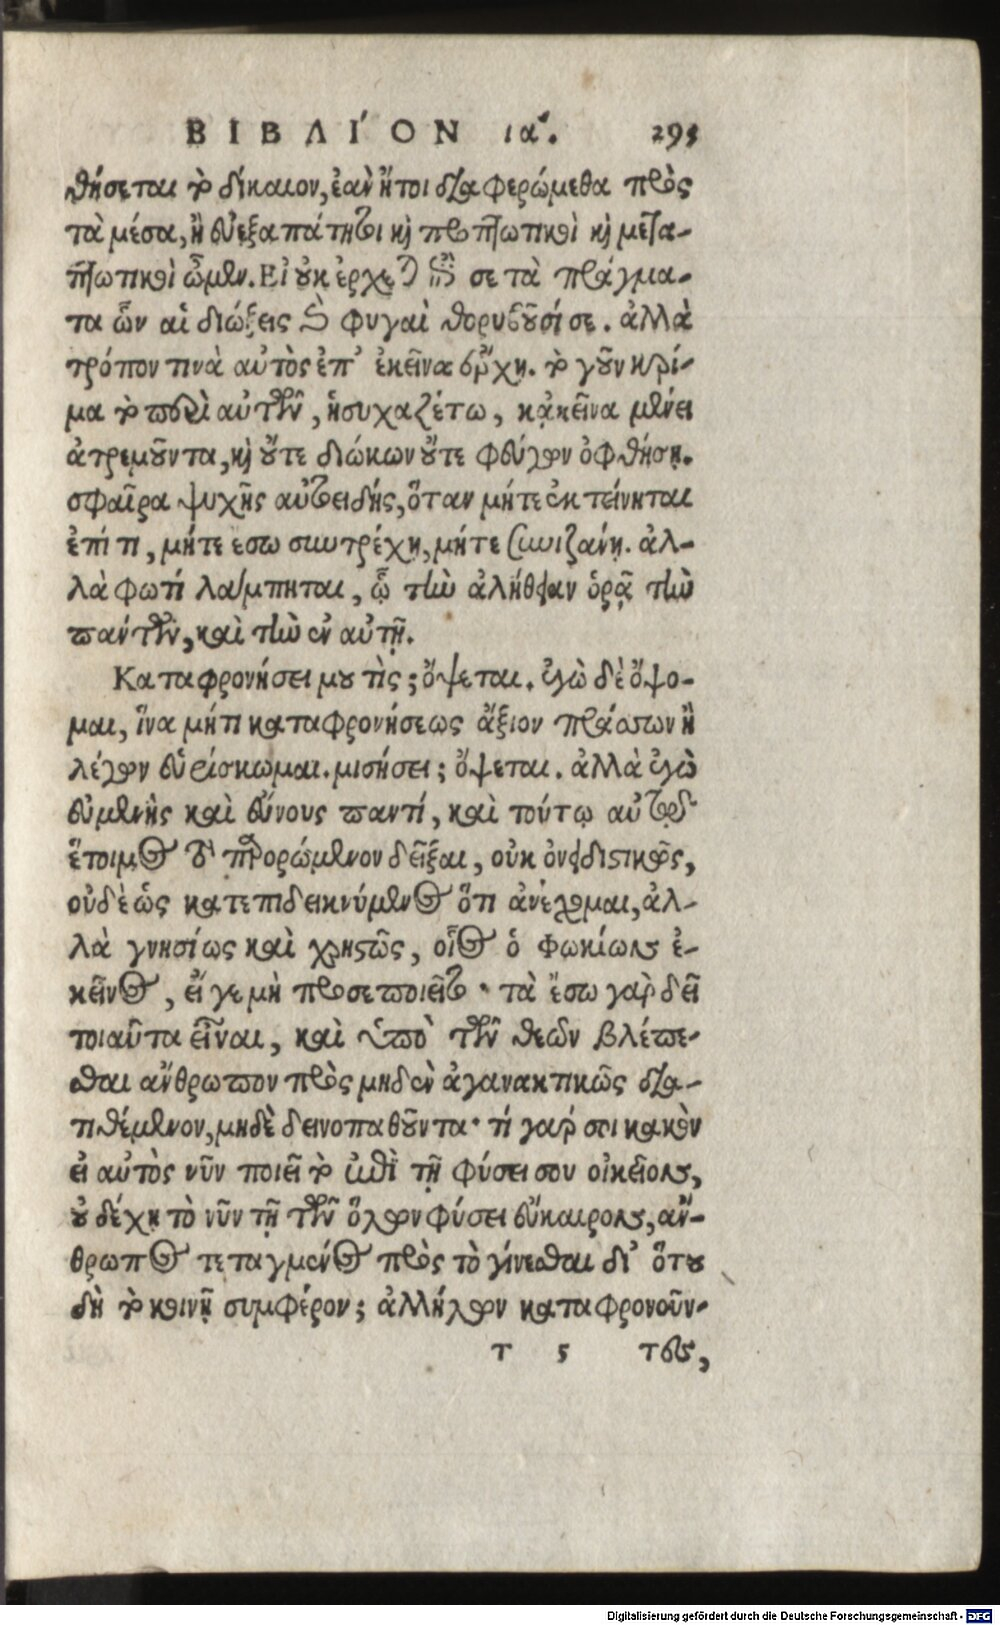 ΒΙΒΛΙ´ΟΝ ια΄. 295
θήσεται τὸ δίκαιον, ἐὰν ἤτοι διαφερώμεθα πρὸς
τὰ μέσα, ἢ εὐεξαπάτητοι καὶ προπτωτικοὶ καὶ μετα-
πτωτικοὶ ὦμεν. Εἰ οὐκ ἔρχεται ἐπὶ σε τὰ πράγμα-
τα ὧν αἱ διώξεις καὶ φυγαὶ θορυβοῦσί σε. ἀλλὰ
τρόπον τινὰ αὐτὸς ἐπ' ἐκεῖνα ἔρχῃ. τὸ γοῦν κρί-
μα τὸ περὶ αὐτῶν, ἡσυχαζέτω, κᾀκεῖνα μενεῖ
ἀτρεμοῦντα, καὶ οὔτε διώκων οὔτε φεύγων ὀφθήσῃ.
σφαῖρα ψυχῆς αὐτοειδής, ὅταν μήτε ἐκτείνηται
ἐπί τι, μήτε ἔσω συντρέχῃ, μήτε συνιζάνῃ. ἀλ-
λὰ φωτί λάμπηται, ᾧ τὴν ἀλήθειαν ὁρᾷ τὴν
πάντων, καὶ τὴν ἐν αὐτῇ.
Καταφρονήσει μου τὶς; ὄψεται. ἐγὼ δὲ ὄψο-
μαι, ἵνα μήτι καταφρονήσεως ἄξιον πράσσων ἢ
λέγων εὑρίσκωμαι. μισήσει; ὄψεται. ἀλλὰ ἐγὼ
εὐμενὴς καὶ εὔνους παντί, καὶ τούτῳ αὐτῷ
ἕτοιμος τὸ παρορώμενον δεῖξαι, οὐκ ὀνειδιστικῶς,
οὐδὲ ὡς κατεπιδεικνύμενος ὅτι ἀνέχομαι, ἀλ-
λὰ γνησίως καὶ χρηστῶς, οἷος ὁ Φωκίων ἐ-
κεῖνος, εἴ γε μὴ προσεποιεῖτο· τὰ ἔσω γὰρ δεῖ
τοιαῦτα εἶναι, καὶ ὑπὸ τῶν θεῶν βλέπε-
σθαι ἄνθρωπον πρὸς μηδὲν ἀγανακτικῶς δια-
τιθέμενον, μηδὲ δεινοπαθοῦντα· τί γάρ σοι κακὸν
εἰ αὐτὸς νῦν ποιεῖ τὸ ἐπὶ τῇ φύσει σου οἰκεῖον,
οὐ δέχῃ τὸ νῦν τῇ τῶν ὅλων φύσει εὔκαιρον, ἄν-
θρωπος τεταγμένος πρὸς τὸ γίνεσθαι δι' ὅτου
δὴ τὸ κοινῇ συμφέρον; ἀλλήλων καταφρονοῦν-
τ 5 τες,
Digitalisierung gefördert durch die Deutsche Forschungsgemeinschaft - DFG